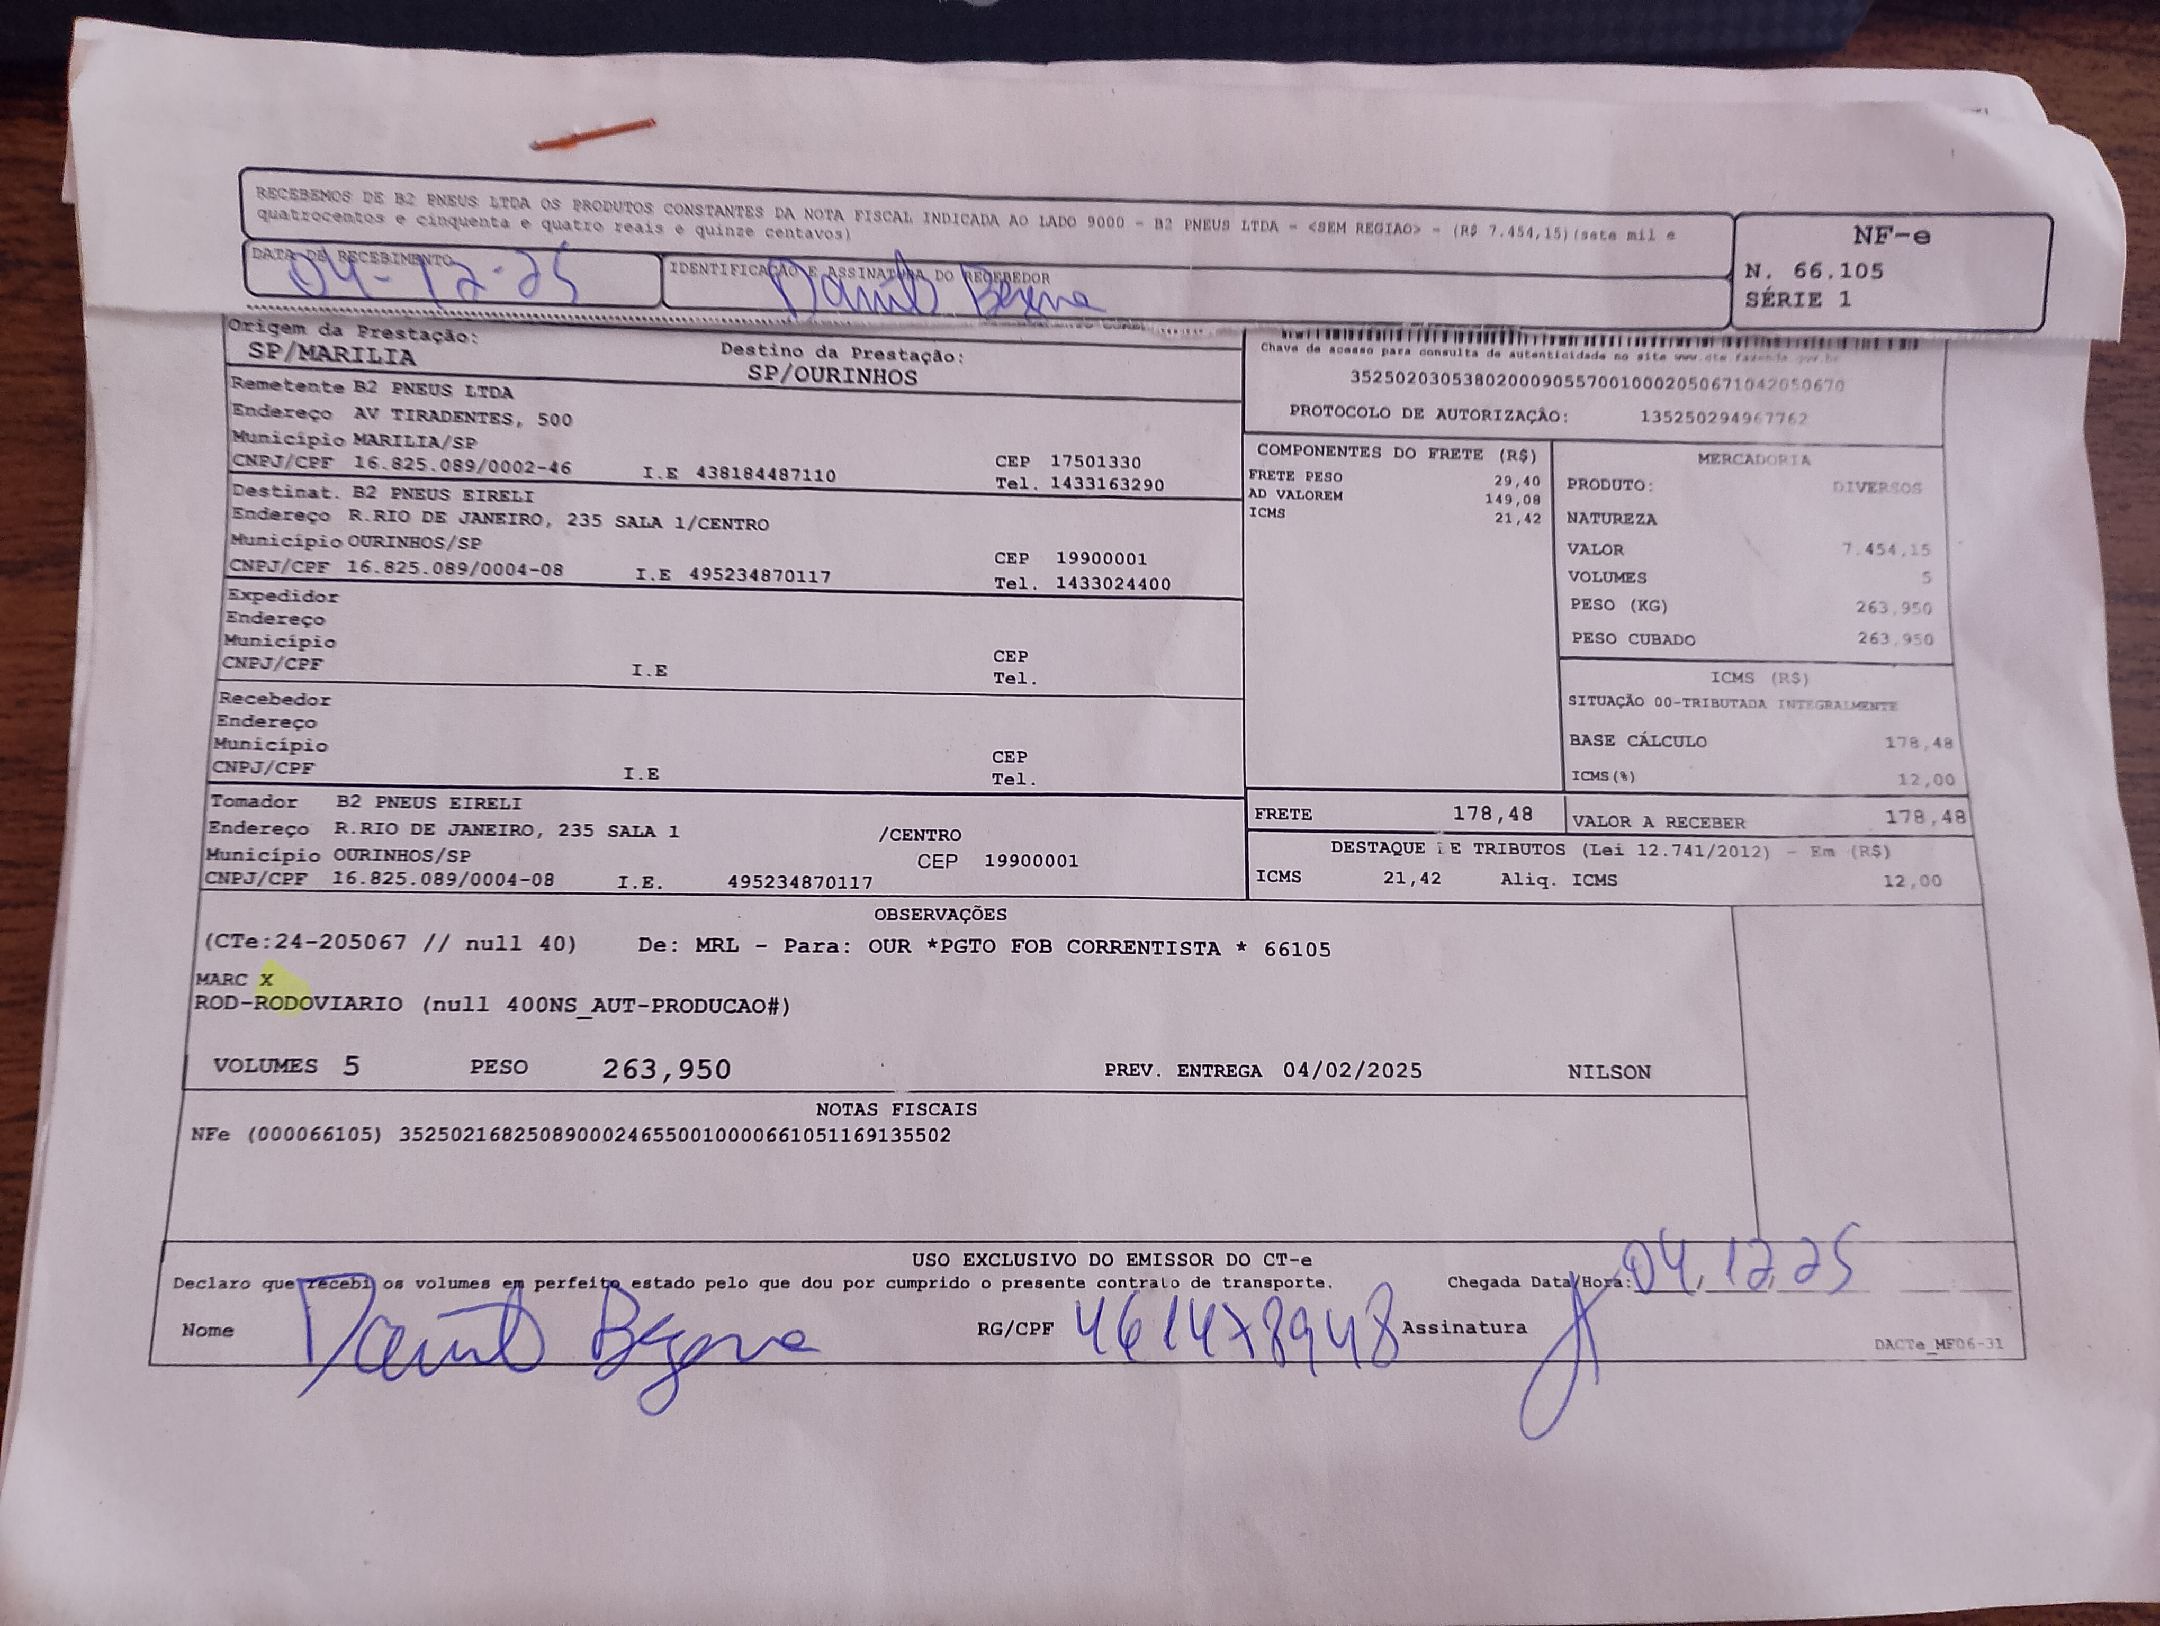 RECEBEMOS DE B2 PNEUS LTDA OS PRODUTOS CONSTANTES DA NOTA FISCAL INDICADA AO LADO 9000 - B2 PNEUS LTDA - <SEM REGIAO> - (R$ 7.454,15)(sete mil e
quatrocentos e cinquenta e quatro reais e quinze centavos)
NF-e
N. 66.105
SÉRIE 1
DATA DE RECEBIMENTO
04-12-25
IDENTIFICAÇÃO E ASSINATURA DO RECEBEDOR
Origem da Prestação:
SP/MARILIA
Destino da Prestação:
SP/OURINHOS
Chave de acesso para consulta de autenticidade no site www.cte.fazenda.gov.br
35250203053802000905570010002050671042050670
PROTOCOLO DE AUTORIZAÇÃO: 135250294967762
Remetente B2 PNEUS LTDA
Endereço AV TIRADENTES, 500
Município MARILIA/SP
CNPJ/CPF 16.825.089/0002-46 I.E 438184487110
CEP 17501330
Tel. 1433163290
Destinat. B2 PNEUS EIRELI
Endereço R.RIO DE JANEIRO, 235 SALA 1/CENTRO
Município OURINHOS/SP
CNPJ/CPF 16.825.089/0004-08 I.E 495234870117
CEP 19900001
Tel. 1433024400
Expedidor
Endereço
Município
CNPJ/CPF I.E
CEP
Tel.
Recebedor
Endereço
Município
CNPJ/CPF I.E
CEP
Tel.
Tomador B2 PNEUS EIRELI
Endereço R.RIO DE JANEIRO, 235 SALA 1 /CENTRO
Município OURINHOS/SP CEP 19900001
CNPJ/CPF 16.825.089/0004-08 I.E. 495234870117
COMPONENTES DO FRETE (R$)
FRETE PESO 29,40
AD VALOREM 149,08
ICMS 21,42
MERCADORIA
PRODUTO: DIVERSOS
NATUREZA
VALOR 7.454,15
VOLUMES 5
PESO (KG) 263,950
PESO CUBADO 263,950
ICMS (R$)
SITUAÇÃO 00-TRIBUTADA INTEGRALMENTE
BASE CÁLCULO 178,48
ICMS(%) 12,00
FRETE 178,48
VALOR A RECEBER 178,48
DESTAQUE DE TRIBUTOS (Lei 12.741/2012) - Em (R$)
ICMS 21,42 Aliq. ICMS 12,00
OBSERVAÇÕES
(CTe:24-205067 // null 40) De: MRL - Para: OUR *PGTO FOB CORRENTISTA * 66105
MARC X
ROD-RODOVIARIO (null 400NS_AUT-PRODUCAO#)
VOLUMES 5 PESO 263,950 PREV. ENTREGA 04/02/2025 NILSON
NOTAS FISCAIS
NFe (000066105) 35250216825089000246550010000661051169135502
USO EXCLUSIVO DO EMISSOR DO CT-e
Declaro que recebi os volumes em perfeito estado pelo que dou por cumprido o presente contrato de transporte. Chegada Data/Hora: 04,12,25
Nome RG/CPF 461478948 Assinatura
DACTe_MF06-31